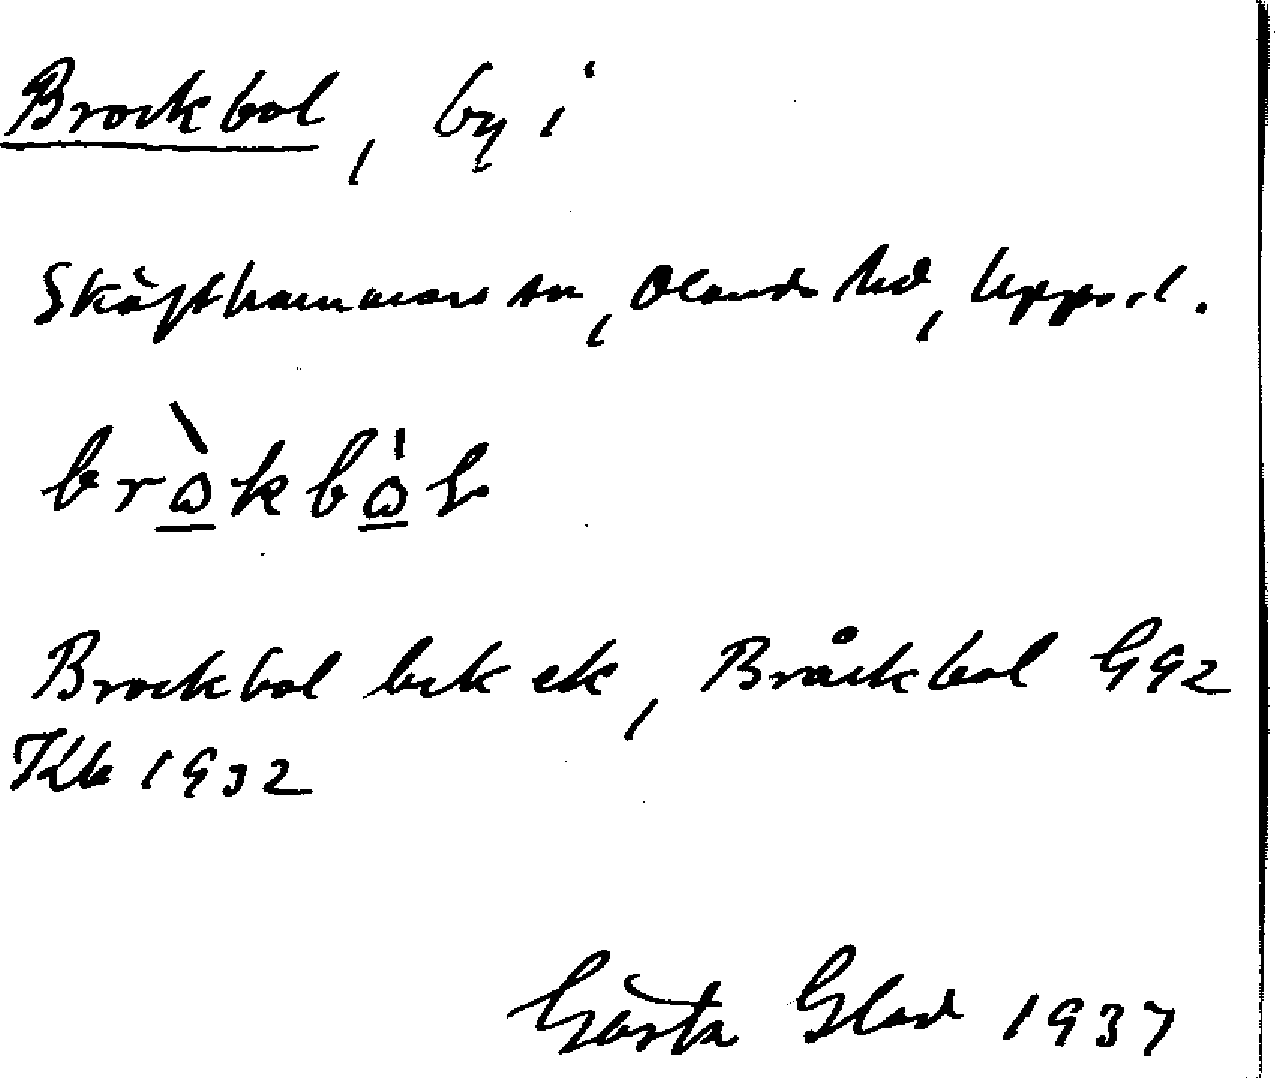 Brockbol, by i
Skäfthammars sn, Olands hd, Uppsl.
brὼkbὼl
Brockbol bek ek, Bråckbol G92
Kbk 1932
Gösta Glad 1937